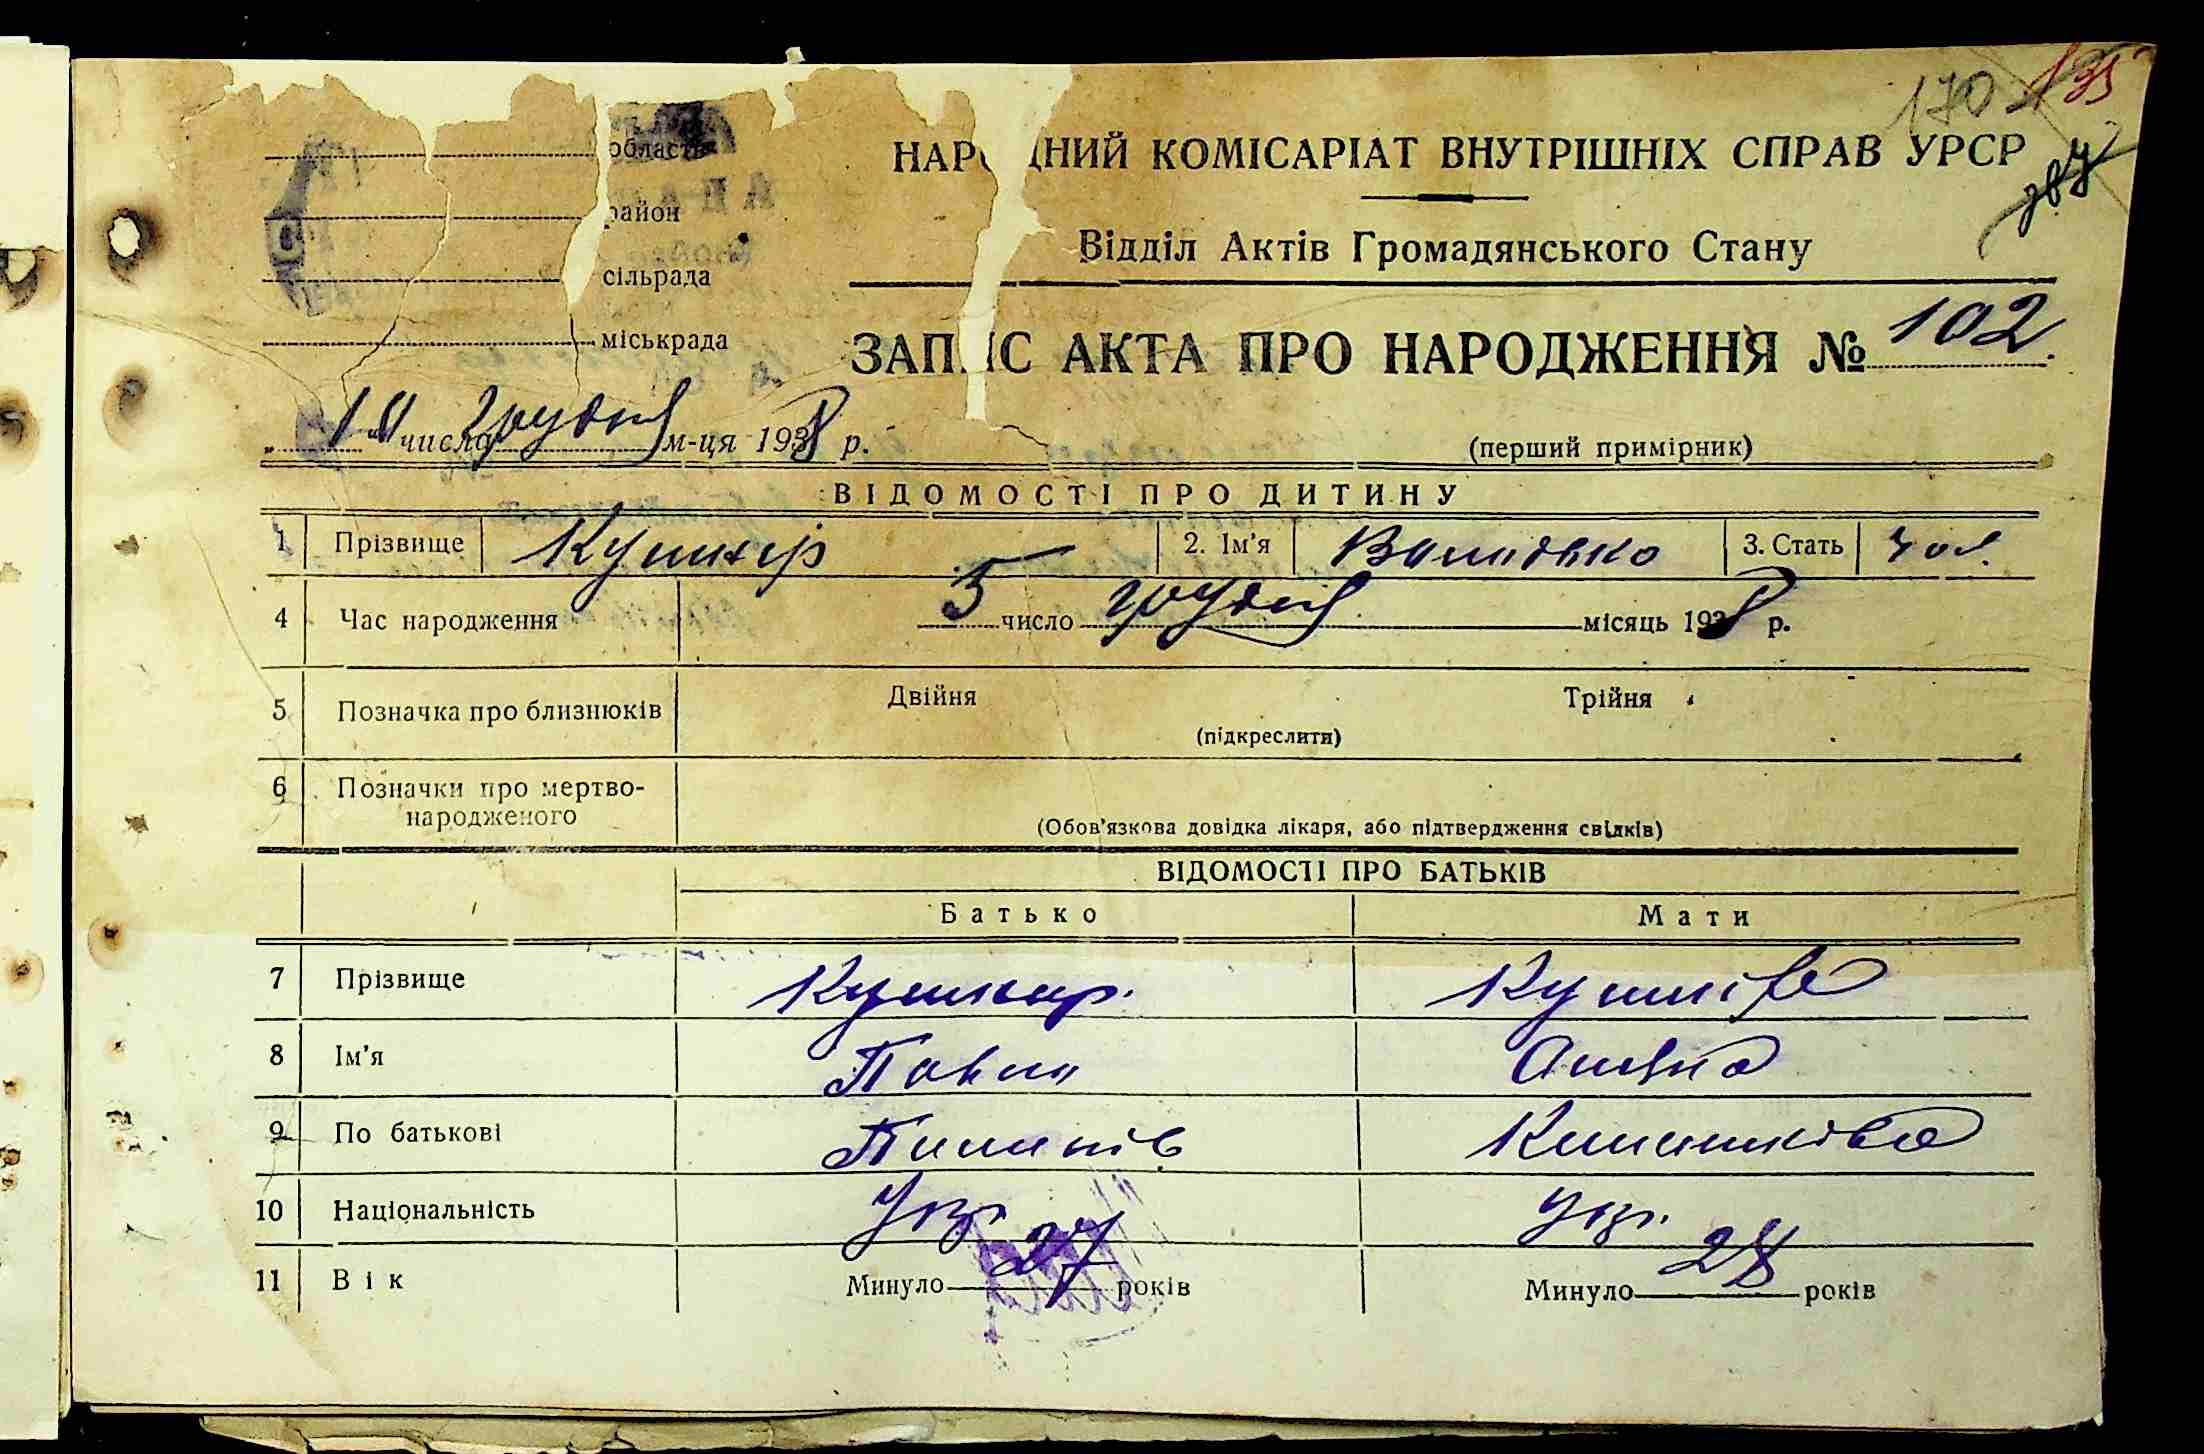 170 135
область
НАР ДНИЙ КОМІСАРІАТ ВНУТРІШНІХ СПРАВ УРСР
район
Відділ Актів Громадянського Стану
сільрада
міськрада
ЗАПИС АКТА ПРО НАРОДЖЕННЯ № 102
„ " числа грудня м-ця 1938 р.
(перший примірник)
ВІДОМОСТІ ПРО ДИТИНУ
1 Прізвище Кушнір 2. Ім'я 3. Стать чол.
4 Час народження 5 число грудня місяць 1938 р.
5 Позначка про близнюків Двійня Трійня
(підкреслити)
6 Позначки про мертво-
народженого
(Обов'язкова довідка лікаря, або підтвердження свідків)
ВІДОМОСТІ ПРО БАТЬКІВ
Батько Мати
7 Прізвище Кушнир.
8 Ім'я Павло
9 По батькові Пилипів
10 Національність Укр. Укр.
11 Вік Минуло 27 років Минуло 28 років